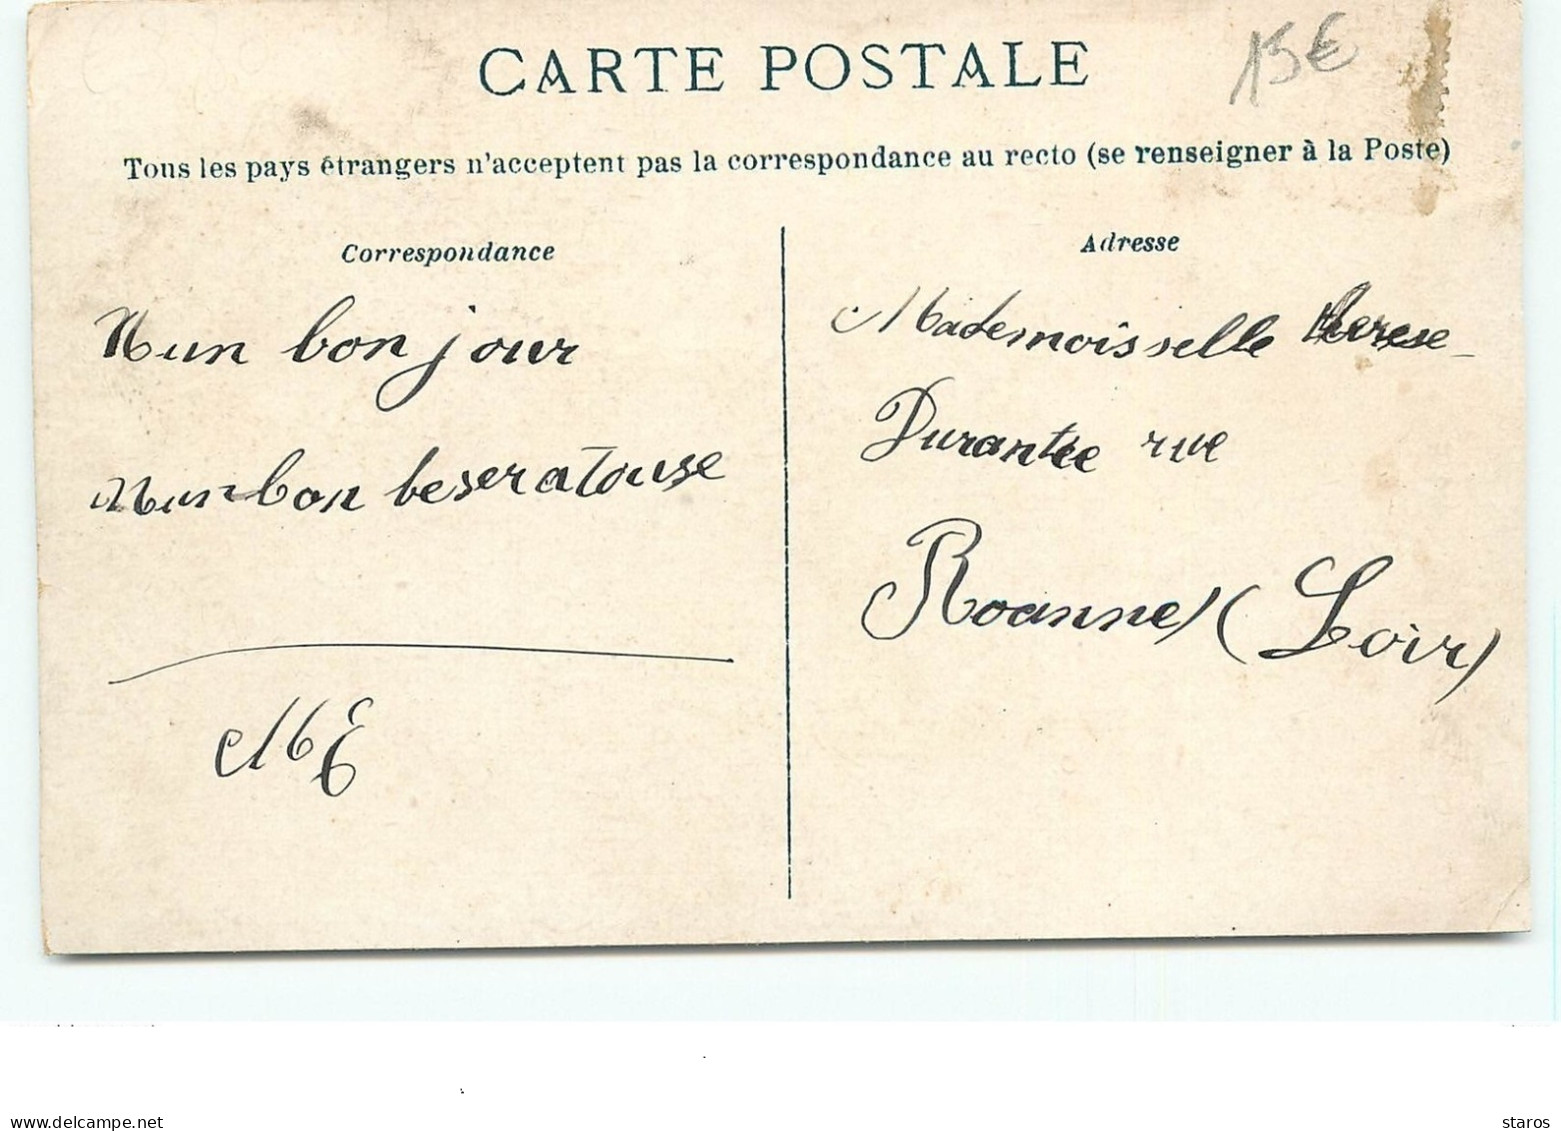 CARTE POSTALE
15€
Tous les pays étrangers n'acceptent pas la correspondance au recto (se renseigner à la Poste)
Correspondance
Nun bon jour
Nun bon beseratouse
ME
Adresse
Mademoisselle therese
Durantee rue
Roanne (Loir)
www.delcampe.net
staros